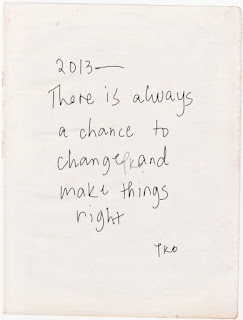 2013—
There is always
a chance to
change and
make things
right